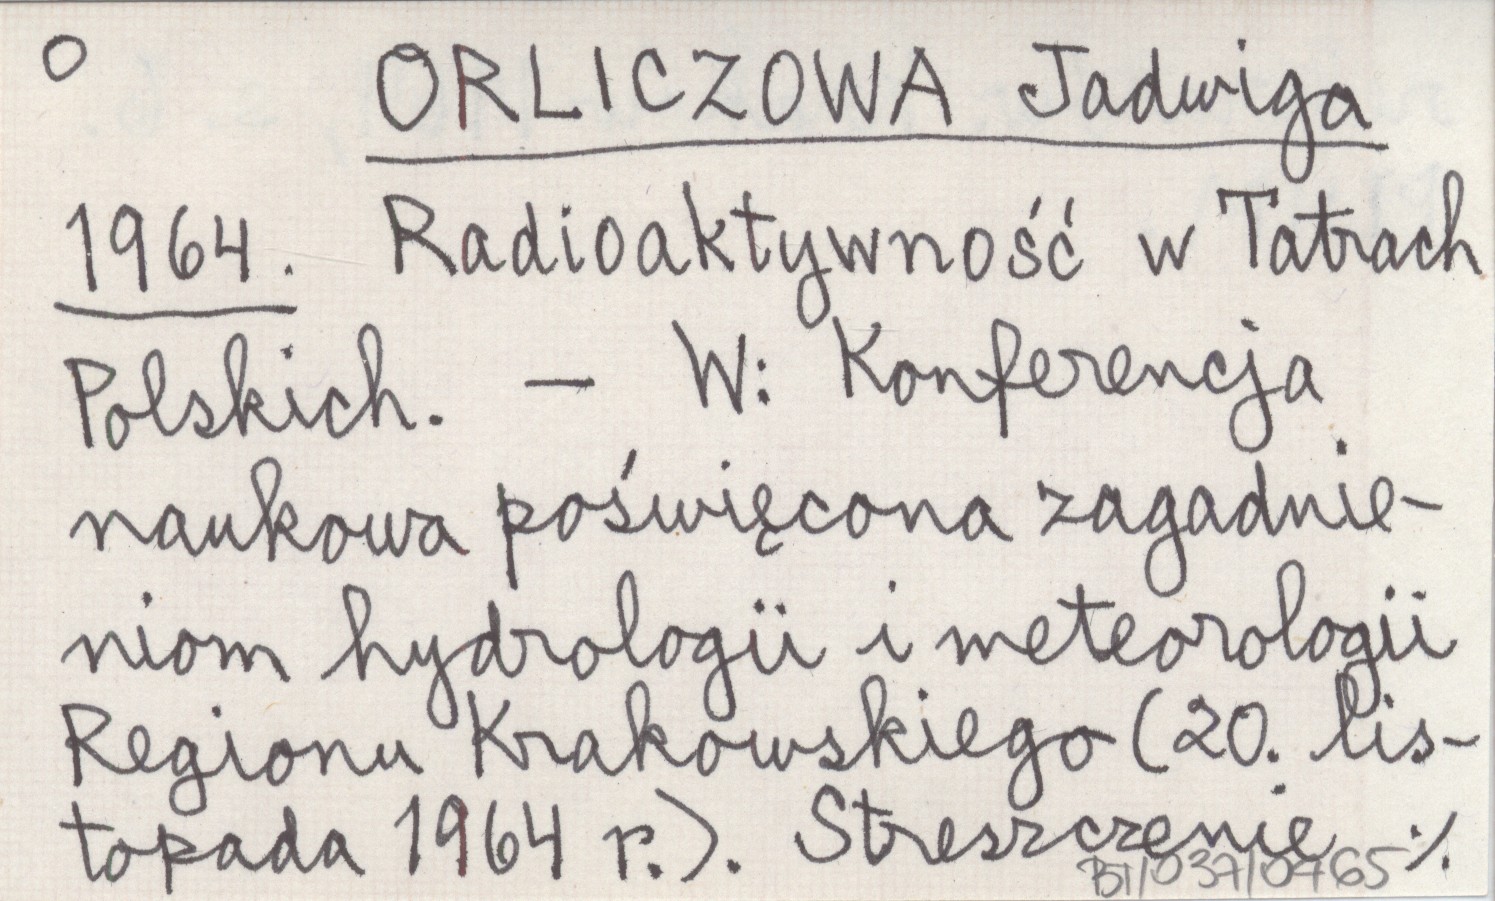 O ORLICZOWA Jadwiga
1964. Radioaktywność w Tatrach
Polskich. — W: Konferencja
naukowa poświęcona zagadnie-
niom hydrologii i meteorologii
Regionu Krakowskiego (20. lis-
topada 1964 r.). Streszczenie ./.
BT/037/0765